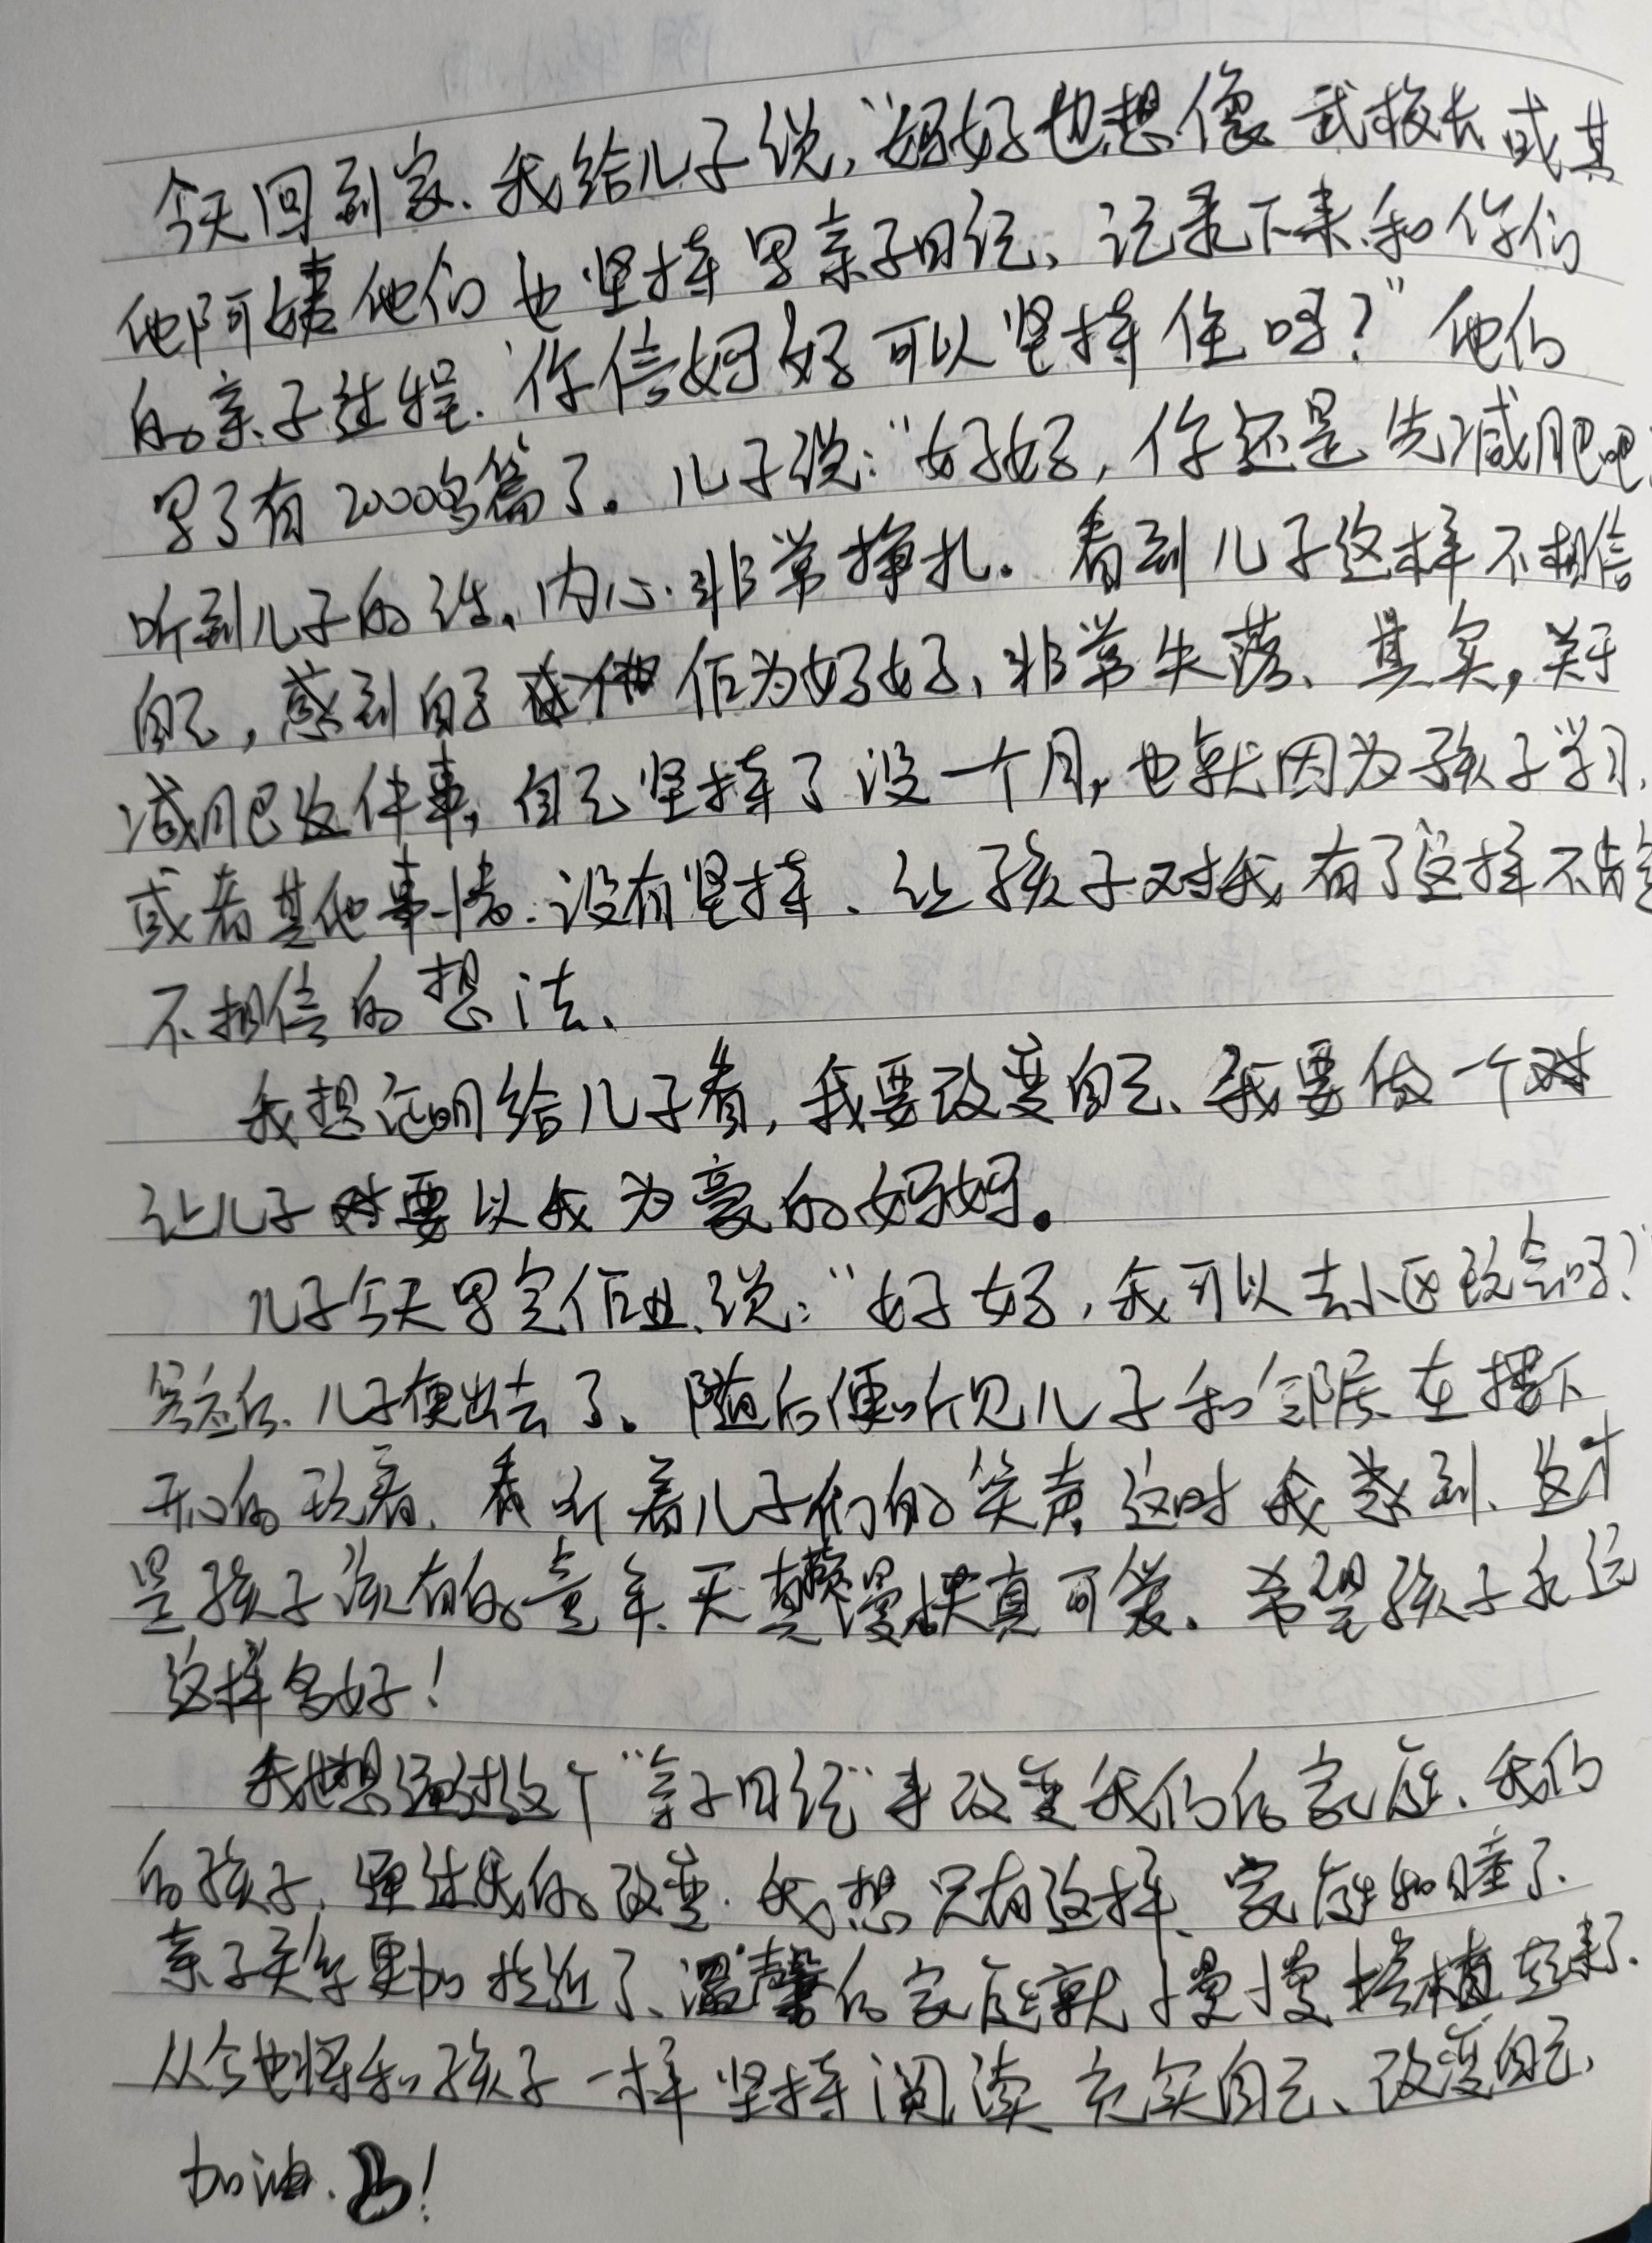 今天回到家、我给儿子说，“妈妈也想像武校长或其
他阿姨他们也坚持写亲子日记、记录下来和你们
的亲子过程. 你信妈妈可以坚持住吗？” 他们
写了有2000多篇了。儿子说：“妈妈，你还是先减肥吧
听到儿子的话，内心非常挣扎。看到儿子这样不相信
自己，感到自己作为妈妈、非常失落、其实，关于
减肥这件事，自己坚持了没一个月，也就因为孩子学习、
或者其他事情.没有坚持、让孩子对我有了这样不肯定
不相信的想法、
我想证明给儿子看，我要改变自己、我要做一个
让儿子要以我为豪的妈妈。
儿子今天写完作业、说：“妈妈，我可以去小区玩会吗？”
答应后、儿子便出去了。随后便听见儿子和邻居在楼下
开心的玩着、听着儿子们的笑声，这时我感到、这才
是孩子该有的童年、天真可爱. 希望孩子永远
这样多好！
我也想通过这个“亲子日记”来改变我们的家庭、我们
的孩子、通过我的改变. 我想只有这样、家庭和睦了、
亲子关系更加拉近了、温馨的家庭就慢慢培植起来了.
从今也将和孩子一样坚持阅读、充实自己、改变自己、
加油.！